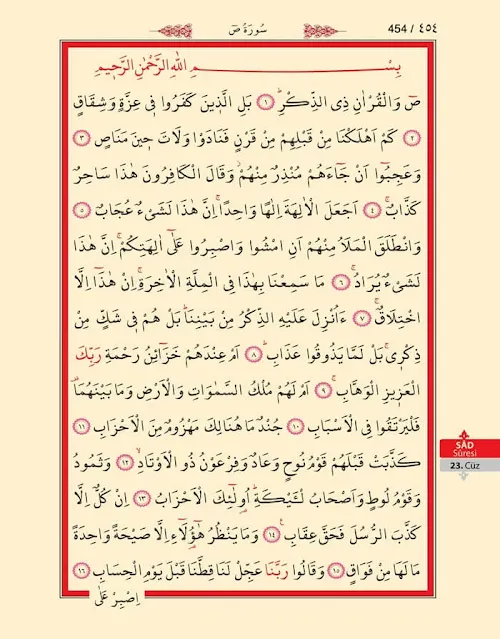 سُورَةُ صٓ
٤٥٤ / 454
بِسْمِ اللّٰهِ الرَّحْمٰنِ الرَّح۪يمِ
صٓ وَالْقُرْاٰنِ ذِي الذِّكْرِۜ ﴿١﴾ بَلِ الَّذ۪ينَ كَفَرُوا ف۪ي عِزَّةٍ وَشِقَاقٍ
﴿٢﴾ كَمْ اَهْلَكْنَا مِنْ قَبْلِهِمْ مِنْ قَرْنٍ فَنَادَوْا وَلَاتَ ح۪ينَ مَنَاصٍ ﴿٣﴾
وَعَجِبُٓوا اَنْ جَٓاءَهُمْ مُنْذِرٌ مِنْهُمْۘ وَقَالَ الْكَافِرُونَ هٰذَا سَاحِرٌ
كَذَّابٌۚ ﴿٤﴾ اَجَعَلَ الْاٰلِهَةَ اِلٰهًا وَاحِدًاۚ اِنَّ هٰذَا لَشَيْءٌ عُجَابٌ ﴿٥﴾
وَانْطَلَقَ الْمَلَاُ مِنْهُمْ اَنِ امْشُوا وَاصْبِرُوا عَلٰٓى اٰلِهَتِكُمْۚ اِنَّ هٰذَا
لَشَيْءٌ يُرَادُۚ ﴿٦﴾ مَا سَمِعْنَا بِهٰذَا فِي الْمِلَّةِ الْاٰخِرَةِۚ اِنْ هٰذَٓا اِلَّا
اخْتِلَاقٌۚ ﴿٧﴾ ءَاُنْزِلَ عَلَيْهِ الذِّكْرُ مِنْ بَيْنِنَاۜ بَلْ هُمْ ف۪ي شَكٍّ مِنْ
ذِكْر۪يۚ بَلْ لَمَّا يَذُوقُوا عَذَابِۜ ﴿٨﴾ اَمْ عِنْدَهُمْ خَزَٓائِنُ رَحْمَةِ رَبِّكَ
الْعَز۪يزِ الْوَهَّابِۚ ﴿٩﴾ اَمْ لَهُمْ مُلْكُ السَّمٰوَاتِ وَالْاَرْضِ وَمَا بَيْنَهُمَا۠
فَلْيَرْتَقُوا فِي الْاَسْبَابِ ﴿١٠﴾ جُنْدٌ مَا هُنَالِكَ مَهْزُومٌ مِنَ الْاَحْزَابِ ﴿١١﴾
كَذَّبَتْ قَبْلَهُمْ قَوْمُ نُوحٍ وَعَادٌ وَفِرْعَوْنُ ذُو الْاَوْتَادِۙ ﴿١٢﴾ وَثَمُودُ
وَقَوْمُ لُوطٍ وَاَصْحَابُ لْـَٔيْكَةِۜ اُو۬لٰٓئِكَ الْاَحْزَابُ ﴿١٣﴾ اِنْ كُلٌّ اِلَّا
كَذَّبَ الرُّسُلَ فَحَقَّ عِقَابِ۟ ﴿١٤﴾ وَمَا يَنْظُرُ هٰٓؤُ۬لَٓاءِ اِلَّا صَيْحَةً وَاحِدَةً
مَا لَهَا مِنْ فَوَاقٍ ﴿١٥﴾ وَقَالُوا رَبَّنَا عَجِّلْ لَنَا قِطَّنَا قَبْلَ يَوْمِ الْحِسَابِ ﴿١٦﴾
اِصْبِرْ عَلٰى
SÂD
Sûresi
23. Cüz